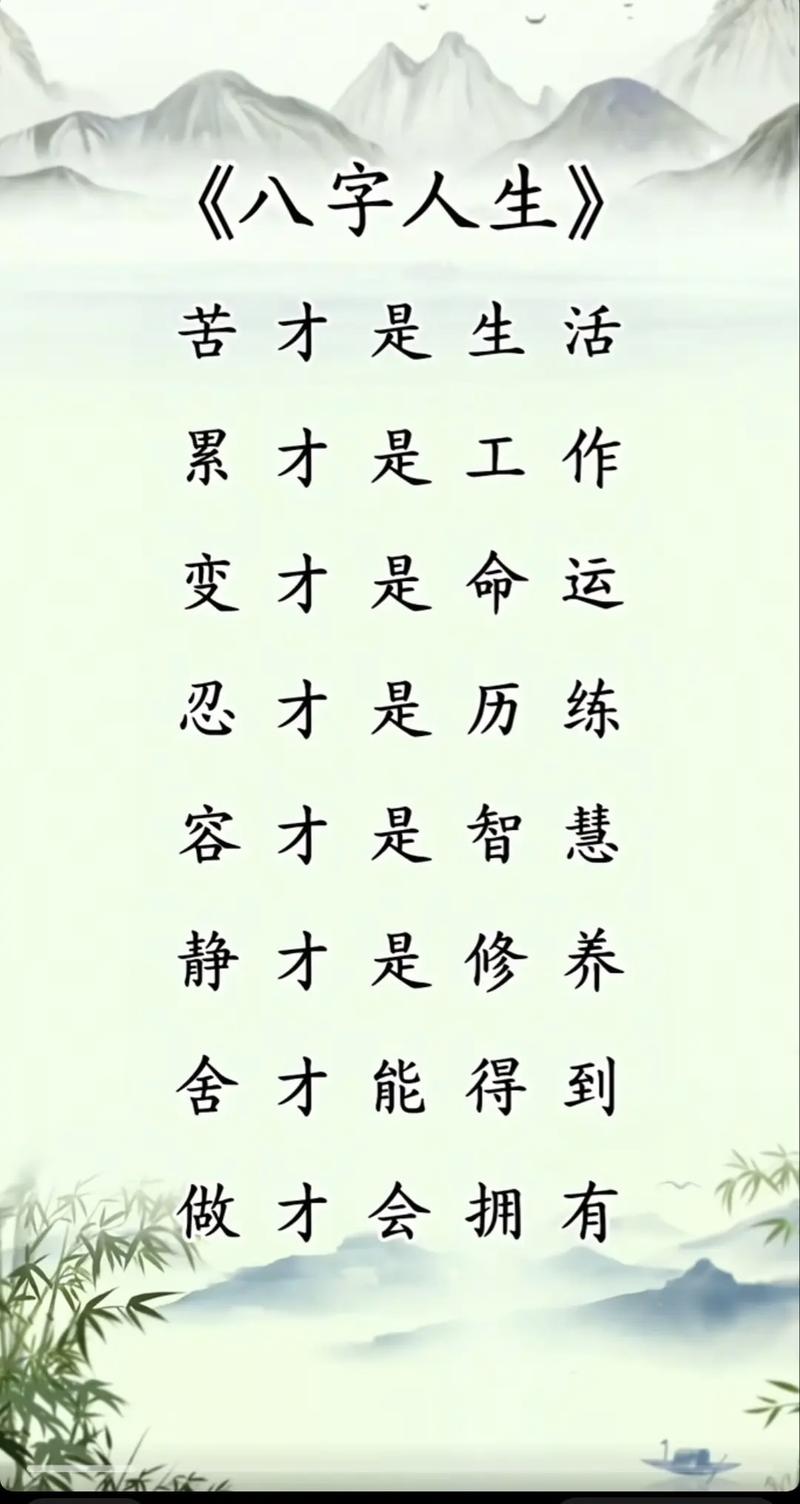 《八字人生》
苦才是生活
累才是工作
变才是命运
忍才是历练
容才是智慧
静才是修养
舍才能得到
做才会拥有